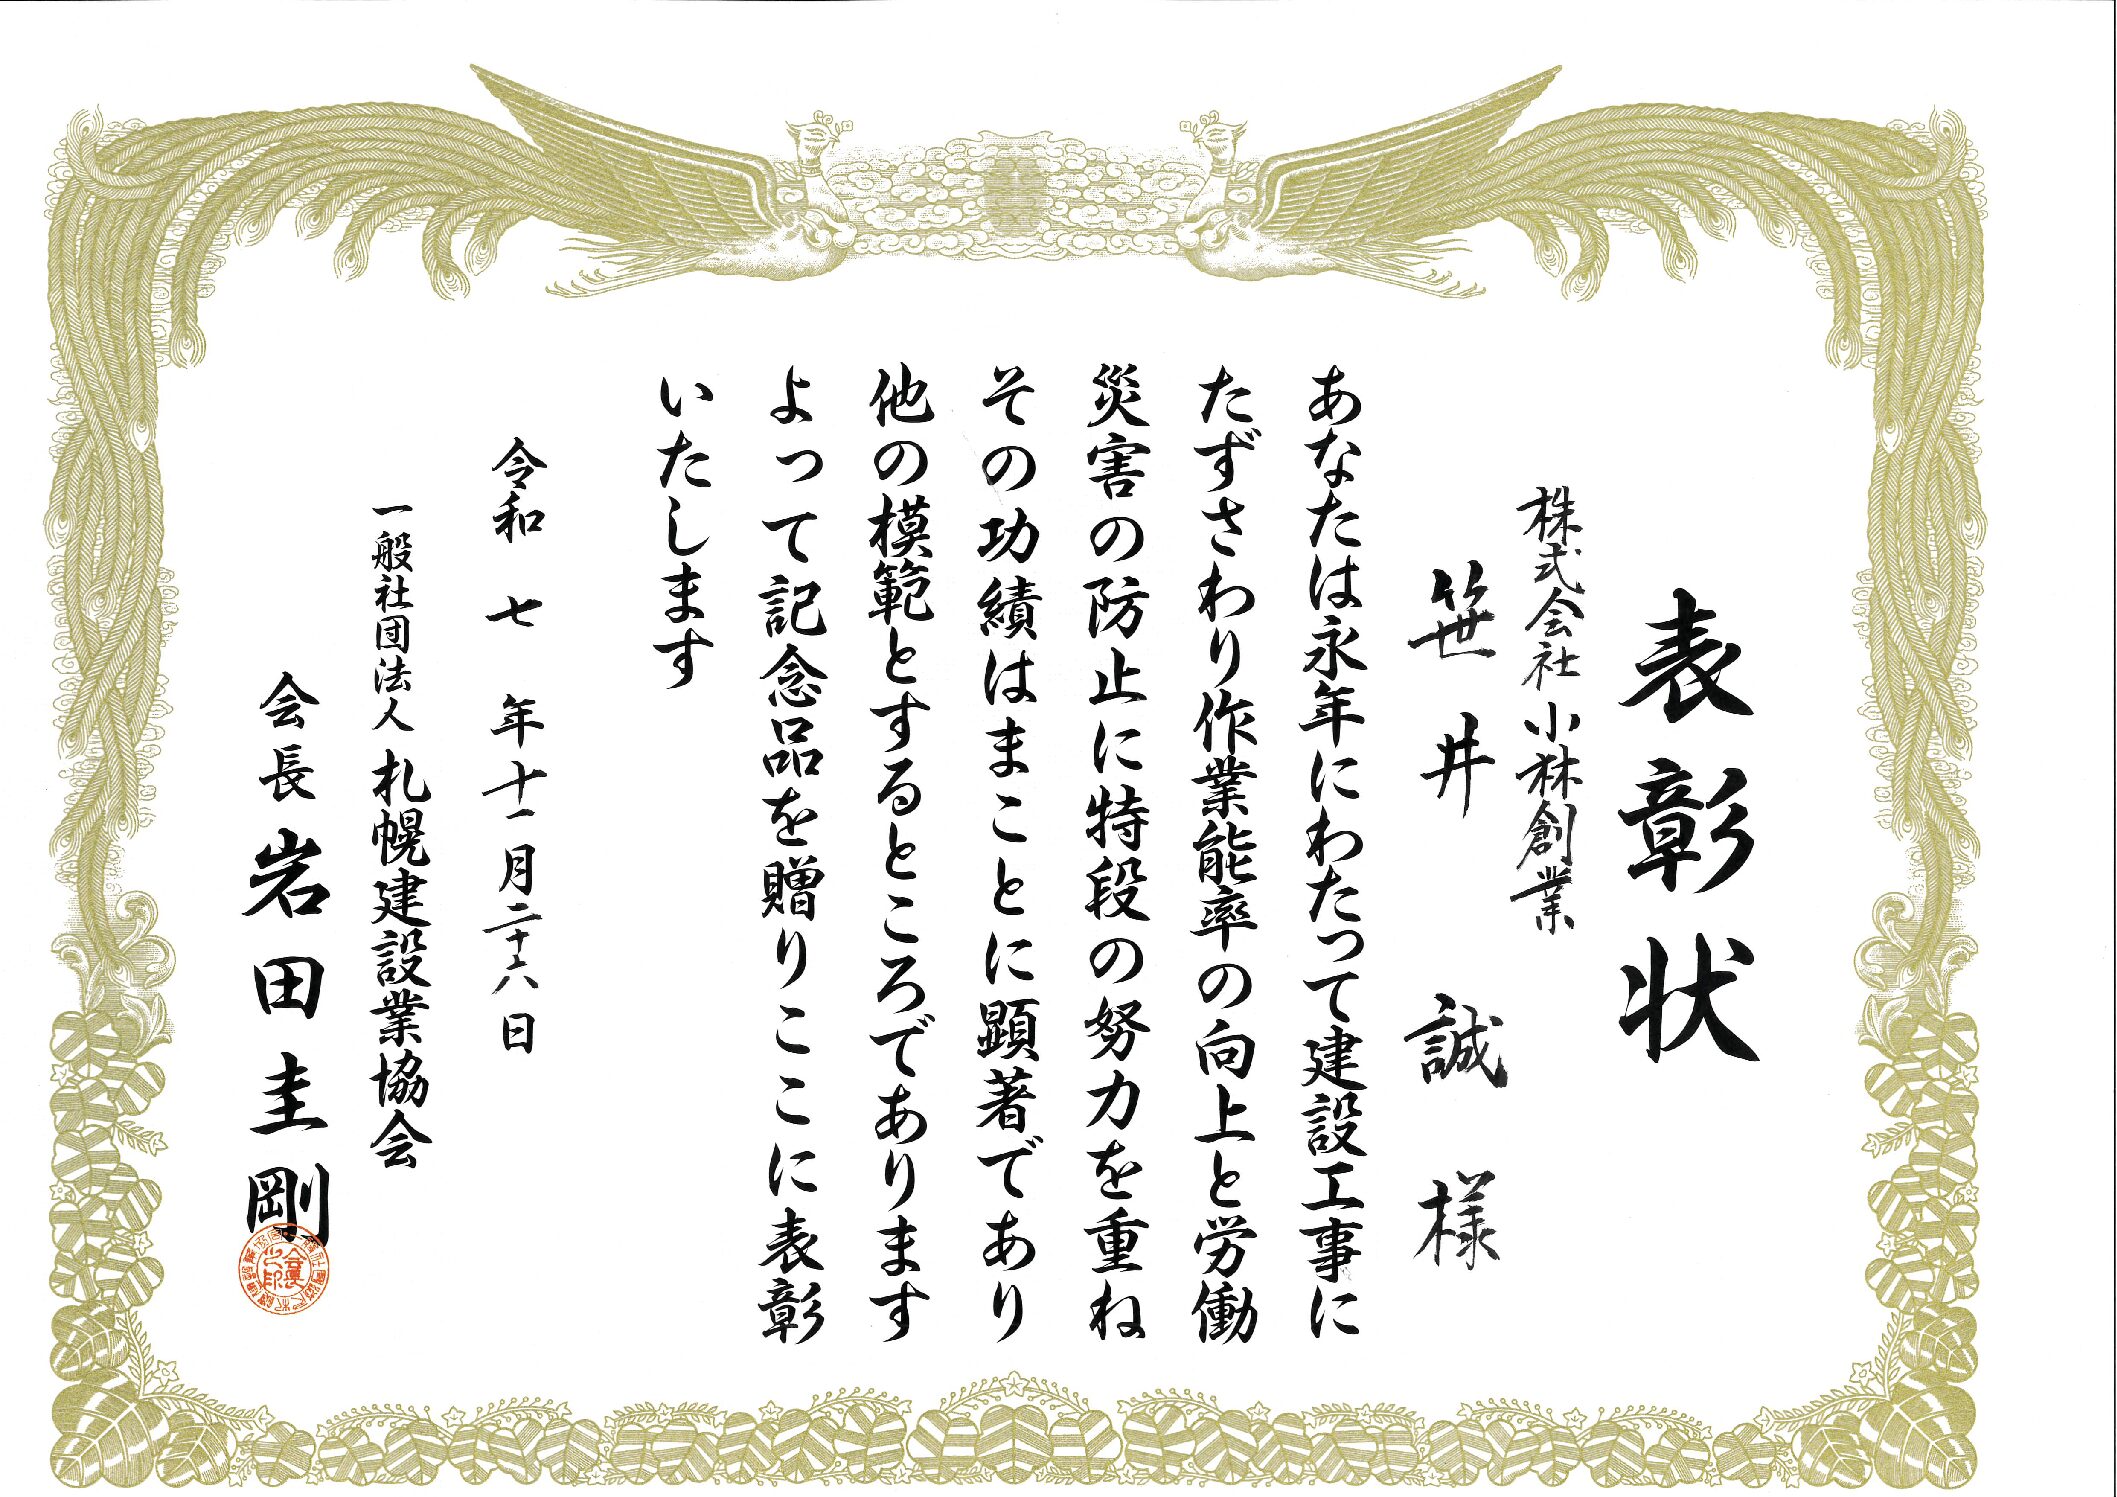 表彰状
株式会社小林創業
笹井 誠 様
あなたは永年にわたって建設工事に
たずさわり作業能率の向上と労働
災害の防止に特段の努力を重ね
その功績はまことに顕著であり
他の模範とするところであります
よって記念品を贈りここに表彰
いたします
令和 七 年十一月二十六日
一般社団法人 札幌建設業協会
会長 岩田圭剛